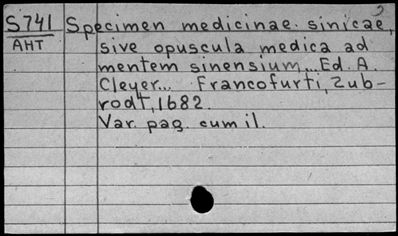 S741 Specimen medicinae sinicae,
AHT sive opuscula medica ad
mentem sinensium... Ed. A.
Cleyer... Francofurti, Zub-
rodt, 1682.
Var. pag. cum il.